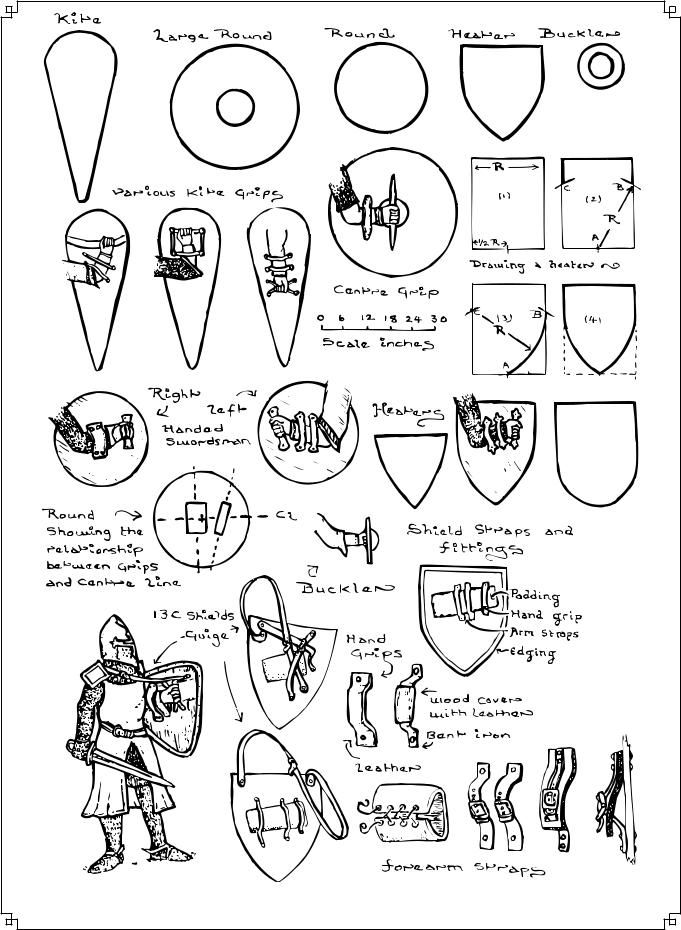 Kite
Large Round
Round
Heater
Buckler
Various Kite Grips
R
(1)
1/2 R
C
B
(2)
R
A
Drawing a heater
Centre Grip
0 6 12 18 24 30
Scale inches
(3)
B
R
A
(4)
Right
left
Handed
Swordsman
Heaters
Round
Showing the
relationship
between Grips
and Centre line
Buckler
Shield Straps and
fittings
Padding
Hand grip
Arm straps
Edging
13C Shields
Guige
Hand
Grips
Wood cover
with leather
Bent iron
leather
forearm straps